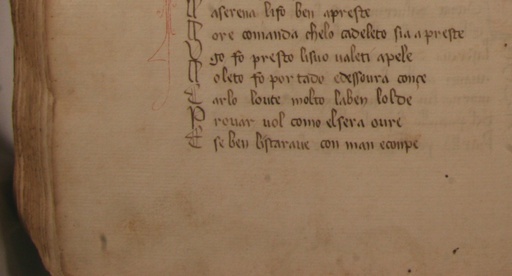 aserena lifo ben apreste
ore comanda chelo cadeleto sia apreste
go fo presto lisuo valeti apele
oleto fo portado edessoura conçe
arlo loute molto laben lolde
P rouar uol como elsera oure
E se ben listaraue con man econpe